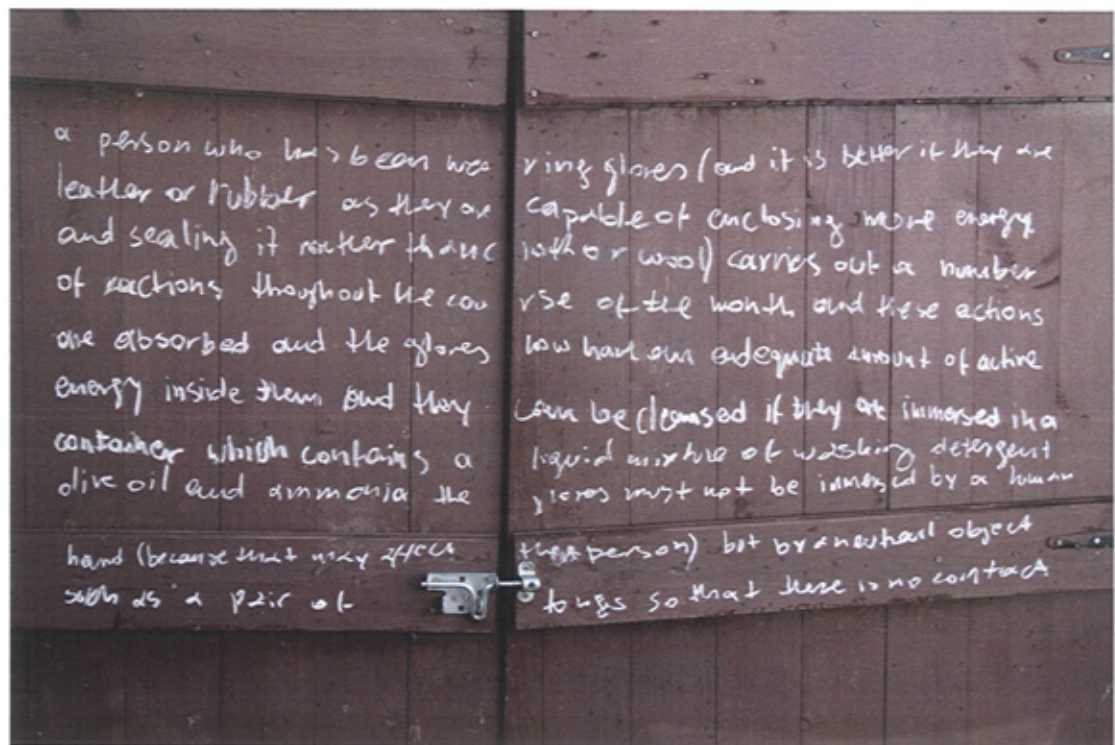 a person who has been wearing gloves (and it is better if they are
leather or rubber as they are capable of enclosing more energy
and sealing it rather than cloth or wool) carries out a number
of actions throughout the course of the month and these actions
are absorbed and the gloves now have an adequate amount of active
energy inside them and they can be cleansed if they are immersed in a
container which contains a liquid mixture of washing detergent
olive oil and ammonia the gloves must not be immersed by a human
hand (because that may affect that person) but by a neutral object
such as a pair of tongs so that there is no contact